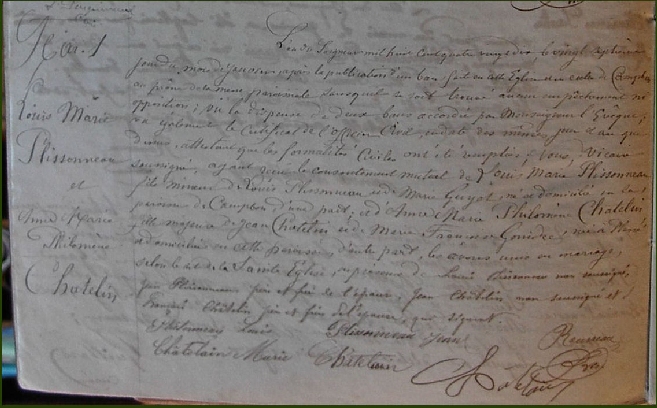 Mar. 1
Louis Marie
Plissonneau
et
Anne Marie
Philomène
Chatelin
L'an du Seigneur mil huit cent quatre vingt
jour du mois de après la publication d'un ban fait en cette Eglise et en celle de Campbon
au prône de la messe paroissiale sans qu'il se soit trouvé aucun empêchement ni
opposition; vu la dispense de deux bans accordée par Monseigneur l'Evêque;
vu également le certificat de l'officier Civil, en date des mêmes jour et an que
dessus, attestant que les formalités Civiles ont été remplies; Nous, Vicaire
soussigné, ayant reçu le consentement mutuel de Louis Marie Plissonneau
fils mineur de Louis Plissonneau et de Marie Guyot, né et domicilié en la
paroisse de Campbon d'une part; et d'Anne Marie Philomène Chatelin
fille majeure de Jean Chatelin et de Marie Françoise née à
et domiciliée en cette paroisse, d'autre part, les avons unis en mariage,
selon le rit de la Sainte Eglise, en présence de Louis Plissonneau non soussigné,
Jean Plissonneau père et frère de l'époux, Jean Chatelin non soussigné et
François Chatelin père et frère de l'épouse, qui signent.
Plissonneau Louis Plissonneau Jean
Chatelain Marie Chatelain